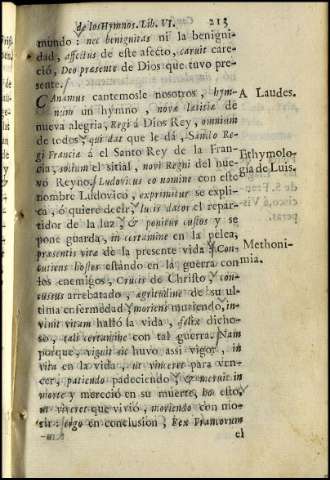 de los Hymnos. Lib. VI. 213
mundo: nec benignitas ni la benigni-
dad, affectus de este afecto, caruit care-
ció, Deo præsente de Dios que tuvo pre-
sente.
CAnamus cantemosle nosotros, hym-
num un hymno, novæ lætitiæ de
nueva alegria, Regi á Dios Rey, omnium
de todos, qui dat que le dá, Sancto Re-
gi Franciæ á el Santo Rey de la Fran-
cia, solium el sitial, novi Regni del nue-
vo Reyno. Ludovicus eo nomine con este
nombre Ludovico, exprimitur se expli-
ca, ó quiere decir, lucis dator el repar-
tidor de la luz, & ponitur custos y se
pone guarda, in certamine en la pelea,
præsentis vitæ de la presente vida. Con-
cutiens hostes estando en la guerra con
los enemigos, Crucis de Christo, con-
cussus arrebatado, ægritudine de su ul-
tima enfermedad, moriens muriendo, in-
vinit vitam halló la vida, felix dicho-
so, tali certamine con tal guerra. Nam
porque, viguit sic huvo assi vigor, in
vita en la vida, ut vinceret para ven-
cer, patiendo padeciendo, & meruit in
morte y mereció en su muerte, hoc esto,
ut viveret que vivió, moriendo con mo-
rir: ergo en conclusion, Rex Francorum
el
A Laudes.
Ethymolo-
gia de Luis.
Methoni-
mia.